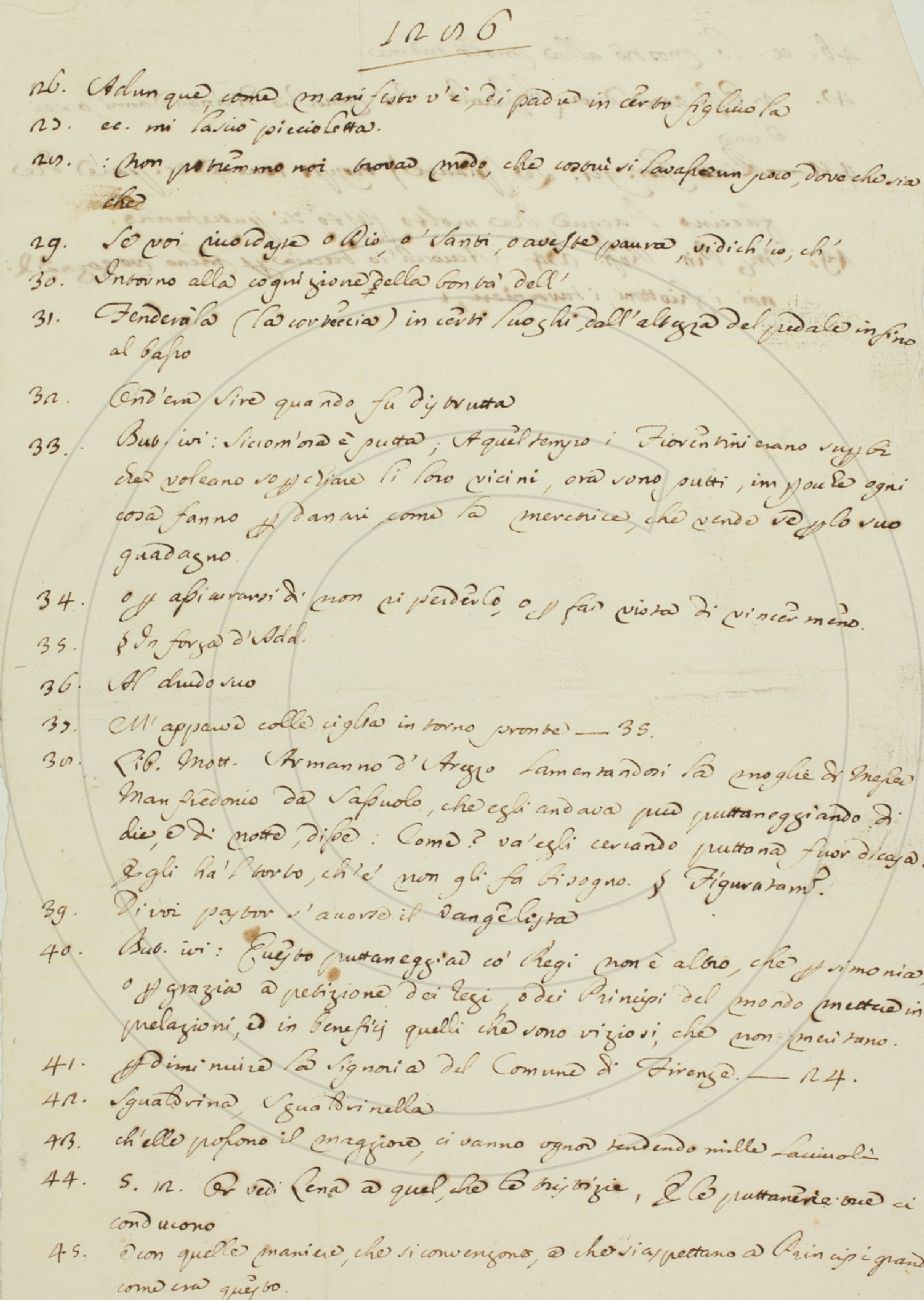 1286
26. Adunque come manifesto v'è, di padre in certo figliuola
27. ec. mi lasciò piccioletta.
28. : Non potremmo noi trovar modo, che costui si lavasse un poco, dove che sia
che
29. Se voi ricordaste o Dio, o' Santi, o aveste paura, vi dich'io, ch'
30. Intorno alla cognizione della bontà dell'
31. Fenderála (la corteccia) in certi luoghi dall'altezza del pedale insino
al basso
32. Ond'era sire quando fu distrutta
33. But. ivi: Siccom'ora è putta; A quel tempo i Fiorentini erano superbi
che voleano soperchiare li loro vicini, ora sono putti, imperocche ogni
cosa fanno per danari, come la meretrice, che vende se per lo suo
guadagno.
34. o per assicurarsi di non vi perderlo, o per far vista di vincer meno.
35. § In forza d'Add.
36. Al drudo suo
37. M'apparve colle ciglia intorno pronte — 35.
38. Lib. Mott. Armanno d'Arezzo lamentandosi la moglie di Messer
Manfredonio da Sassuolo, che egli andava pure puttaneggiando di
die, e di notte, disse: Come? va' egli cercando puttana fuor di casa?
Egli ha 'l torto, ch'e' non gli fa bisogno. § Figuratam.
39. Di voi pastor s'accorse il Vangelista
40. But. ivi: Questo puttaneggiar co' Regi non è altro, che per simonia,
o per grazia a petizione dei regi, o dei Principi del mondo mettere in
prelazioni, ed in beneficj quelli che sono viziosi, che non meritano.
41. per diminuire la signoria del Comune di Firenze. — 24.
42. Sgualdrina, Sgualdrinella
43. ch'elle possono il maggiore, ci vanno ognor tendendo mille lacciuoli
44. 5. 12. Or vedi Lena a quel, che le tristizie, E le puttanerie tue ci
conducono
45. e con quelle maniere, che si convengono, e che si aspettano a Principi grandi
come era questo.